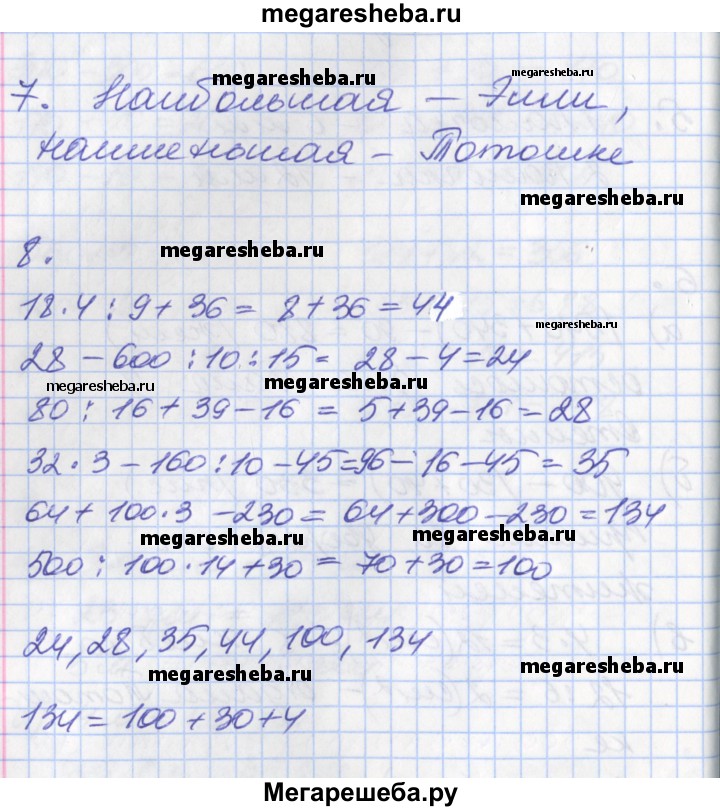 megaresheba.ru
megaresheba.ru
megaresheba.ru
7. Наибольшая – Элли,
наименьшая – Тотошке
megaresheba.ru
megaresheba.ru
8.
megaresheba.ru
18·4:9+36= 8+36=44
megaresheba.ru
28–600:10:15= 28–4=24
megaresheba.ru
megaresheba.ru
80:16+39–16 = 5+39–16=28
32·3–160:10–45=96–16–45=35
64+100·3–230= 64+300–230=134
megaresheba.ru
megaresheba.ru
500:100·14+30= 70+30=100
24,28,35,44,100,134
megaresheba.ru
megaresheba.ru
134=100+30+4
Мегарешеба.ру